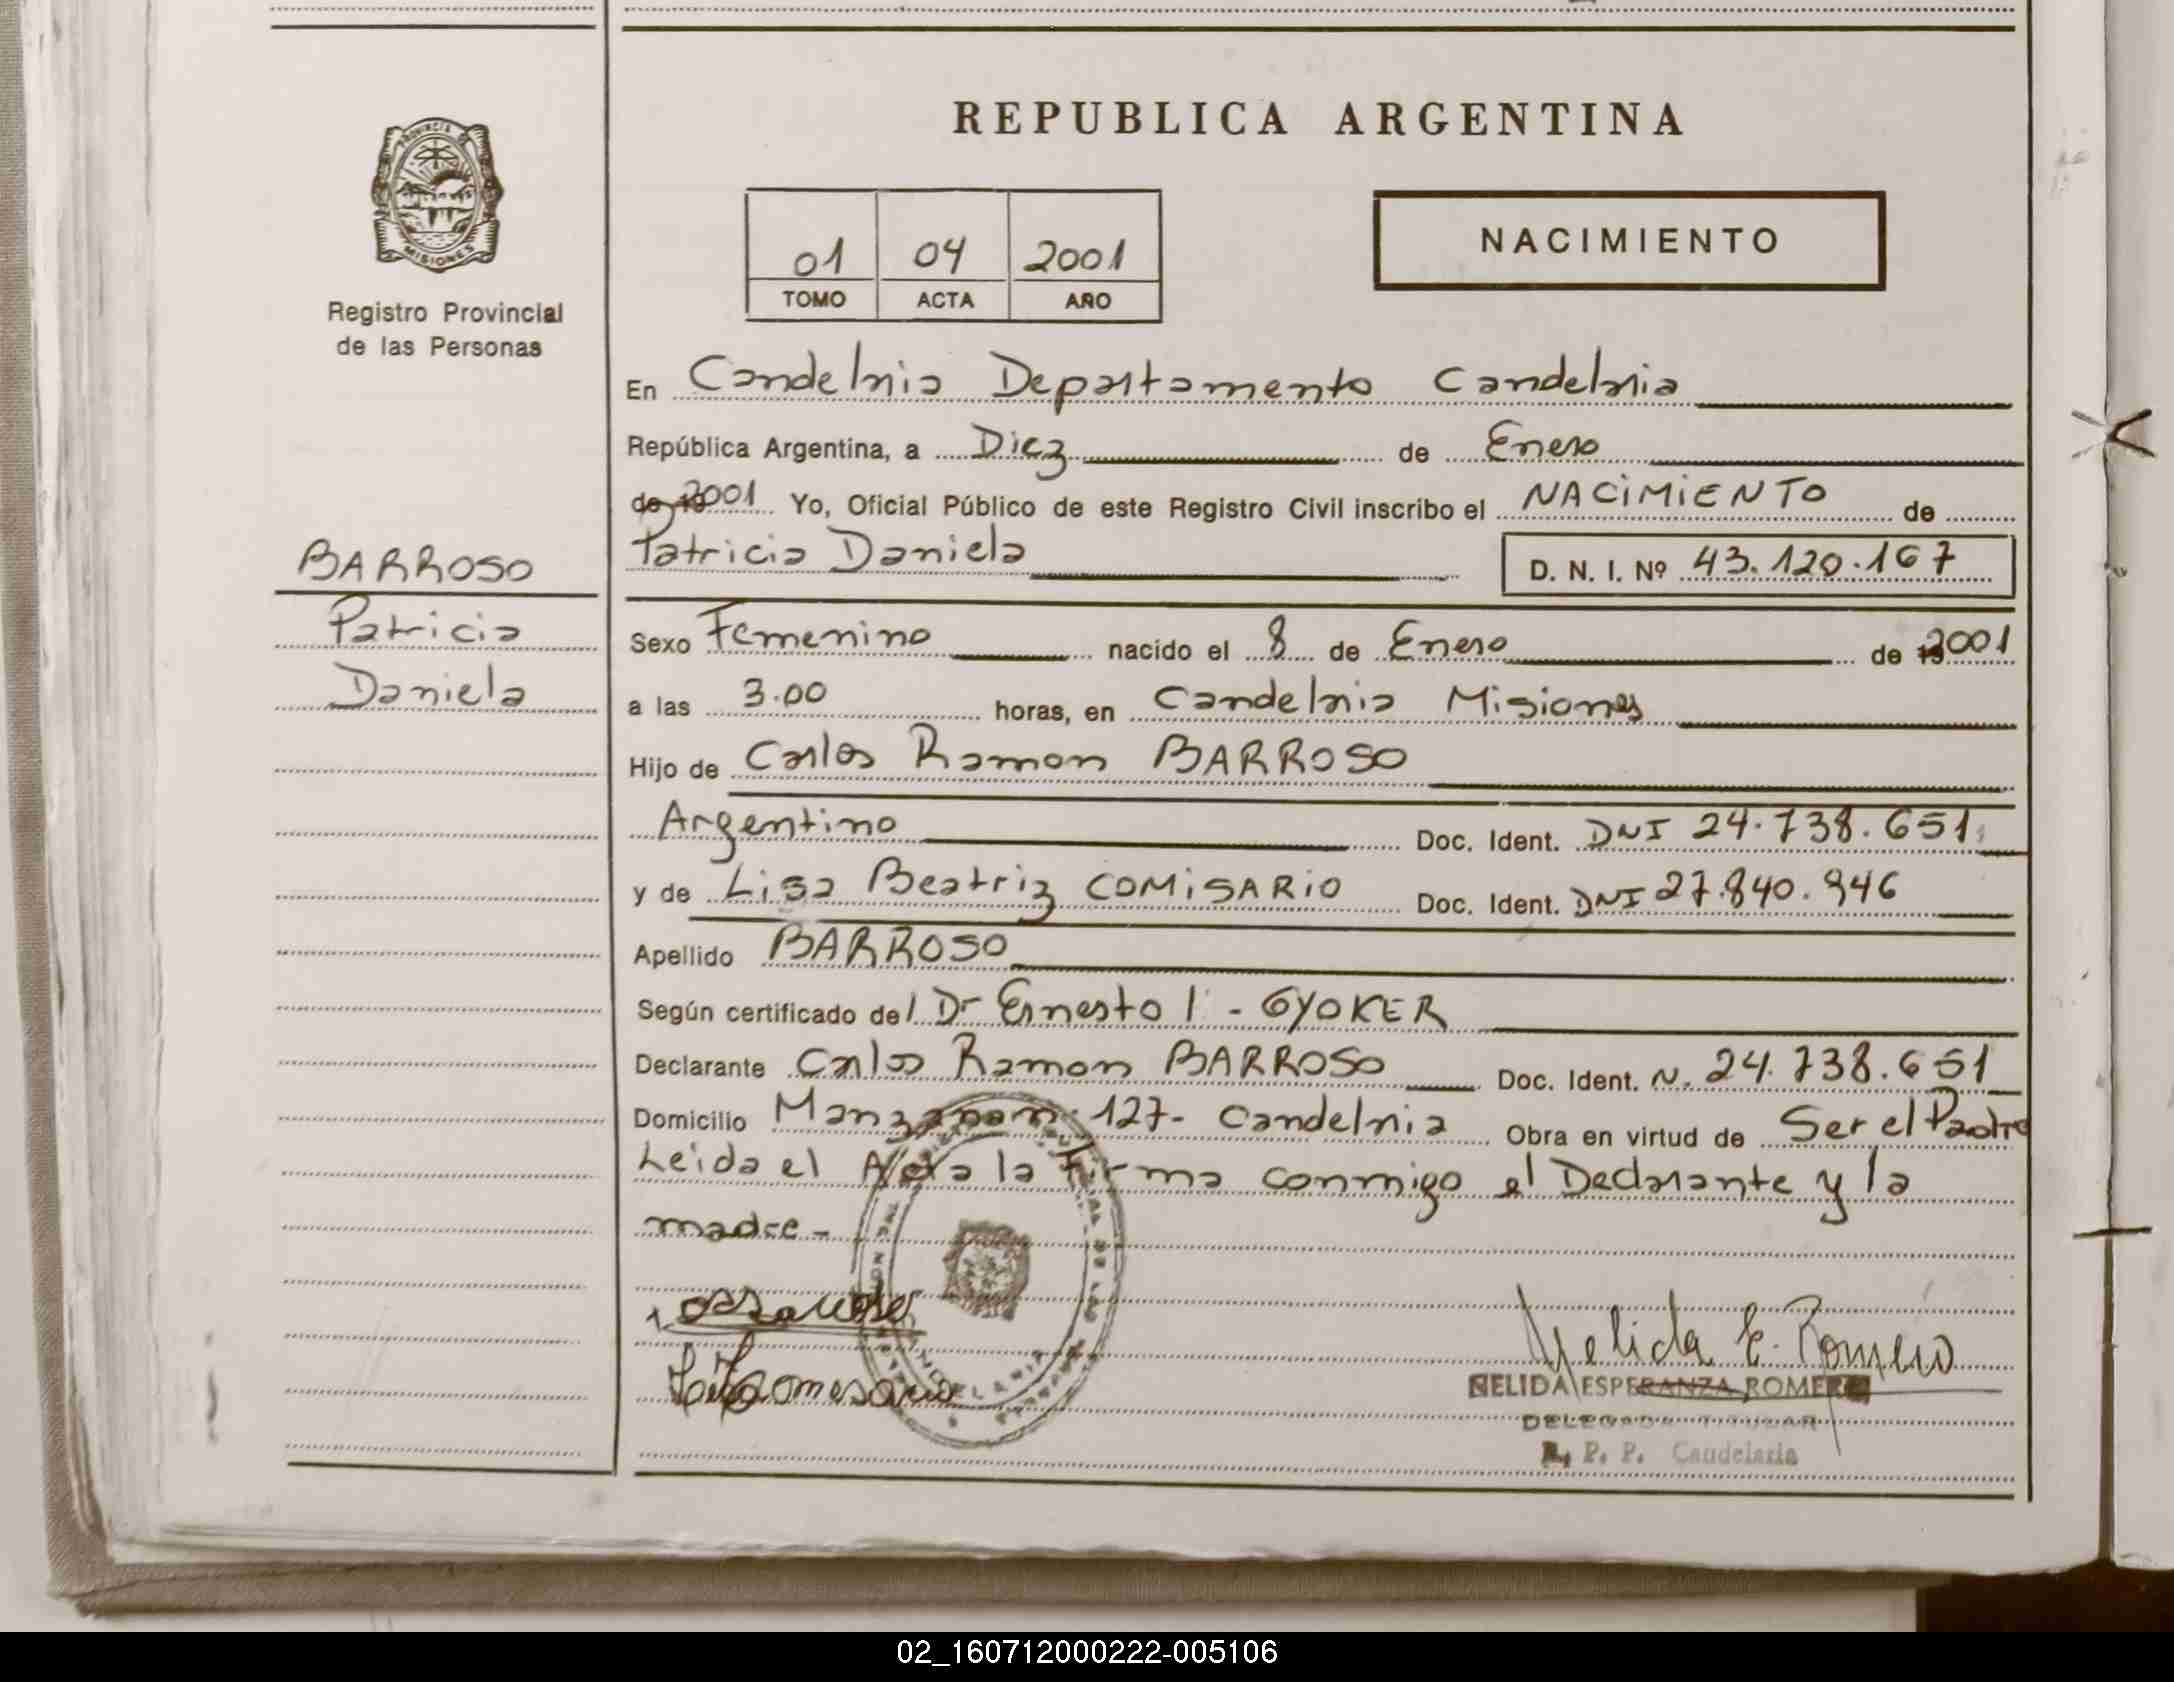 REPUBLICA ARGENTINA
PROVINCIA DE
MISIONES
Registro Provincial
de las Personas
01 04 2001
TOMO ACTA AÑO
NACIMIENTO
En Candelaria Departamento Candelaria
República Argentina, a Diez de Enero
de 19 2001 Yo, Oficial Público de este Registro Civil inscribo el NACIMIENTO de
Patricia Daniela D. N. I. Nº 43.120.167
BARROSO
Patricia
Daniela
Sexo Femenino nacido el 8 de Enero de 2001
a las 3.00 horas, en Candelaria Misiones
Hijo de Carlos Ramon BARROSO
Argentino Doc. Ident. DNI 24.738.651
y de Lisa Beatriz COMISARIO Doc. Ident. DNI 27.840.946
Apellido BARROSO
Según certificado del Dr Ernesto I - GYOKER
Declarante Carlos Ramon BARROSO Doc. Ident. N. 24.738.651
Domicilio 127- Candelaria Obra en virtud de Ser el Padre
Leida el Acta la Firma conmigo el Declarante y la
madre -
Nelida E. Romero
NELIDA ESPERANZA ROMERO
DELEGADA TITULAR
R. P. P. Candelaria
02_160712000222-005106